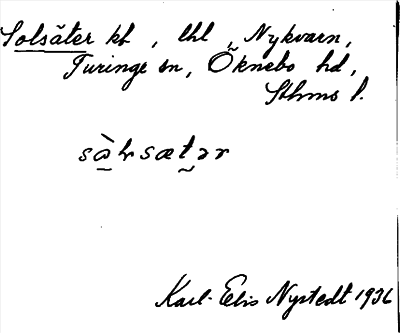 Solsäter kb , lhl , Nykvarn,
Turinge sn, Öknebo hd,
Sthms l.
sàlsætər
Karl-Elis Nystedt 1936